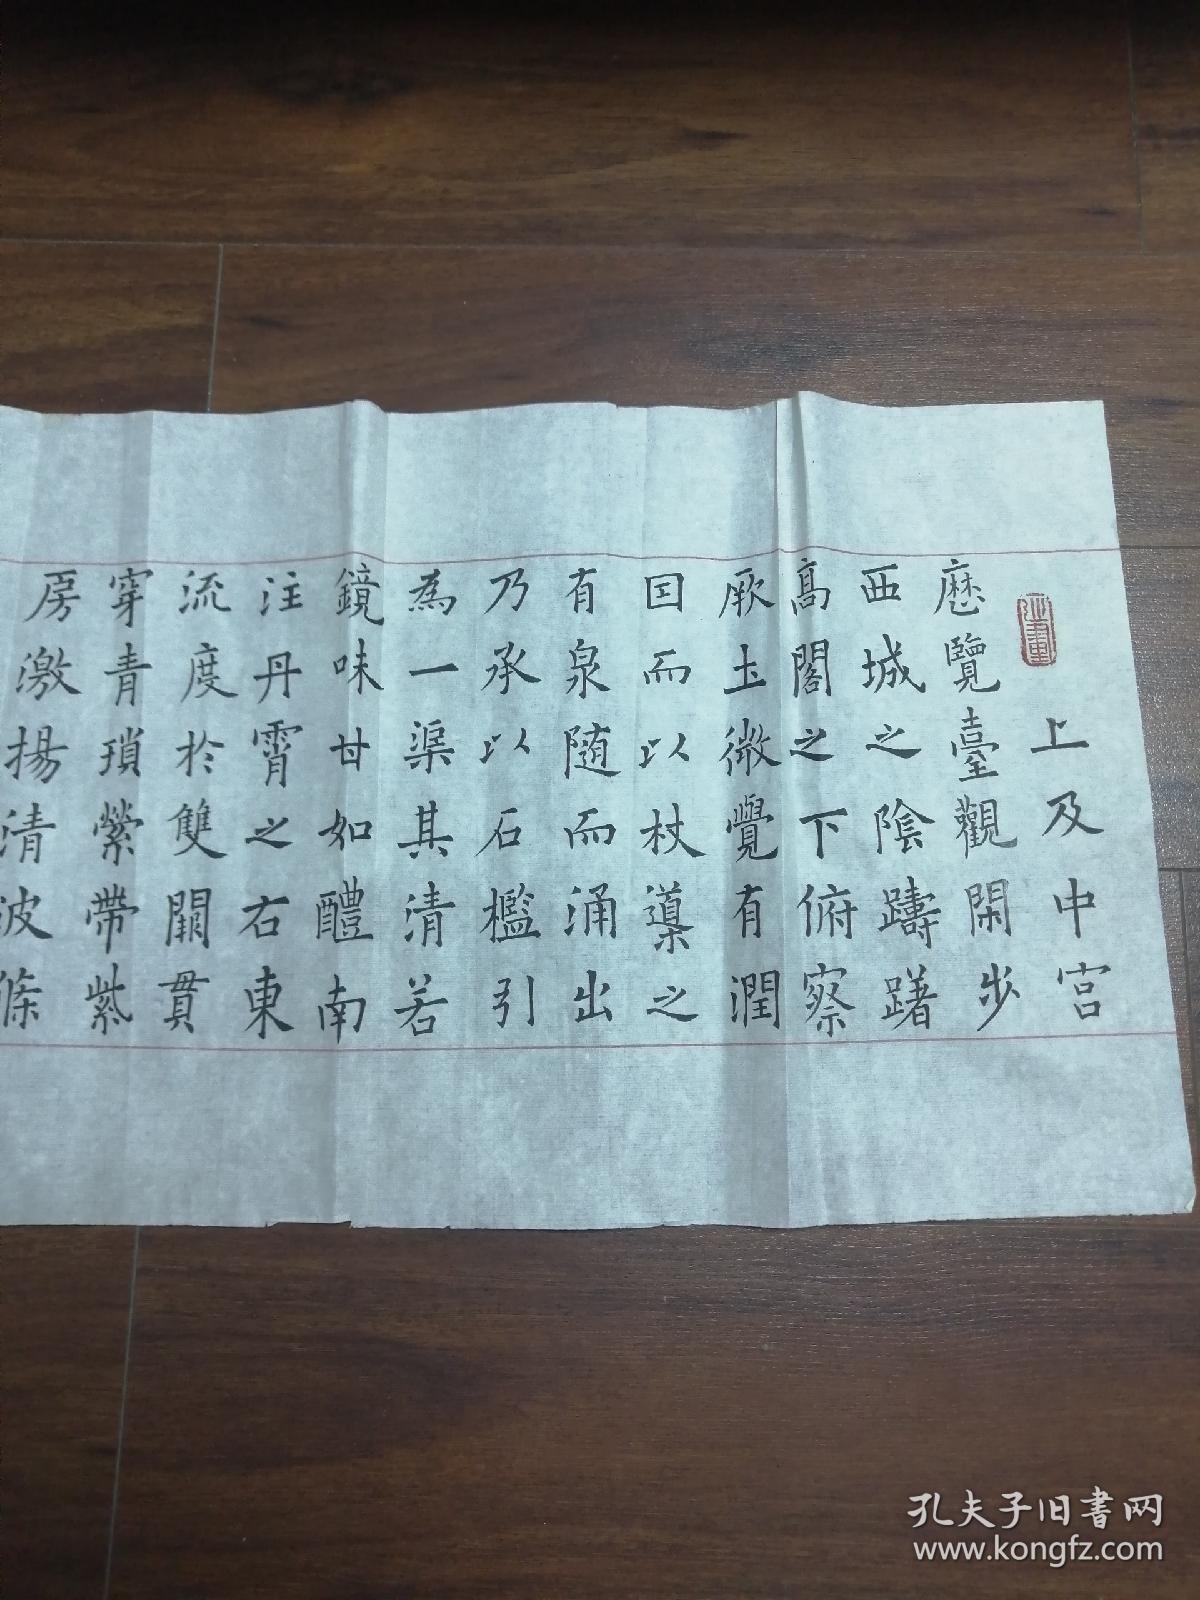 上及中宮
歷覽臺觀閑步
西城之陰躊躇
高閣之下俯察
厥土微覺有潤
因而以杖導之
有泉随而涌出
乃承以石檻引
為一渠其清若
鏡味甘如醴南
注丹霄之右東
流度於雙闕貫
穿青瑣縈帶紫
房激揚清波滌
孔夫子旧書网
www.kongfz.com